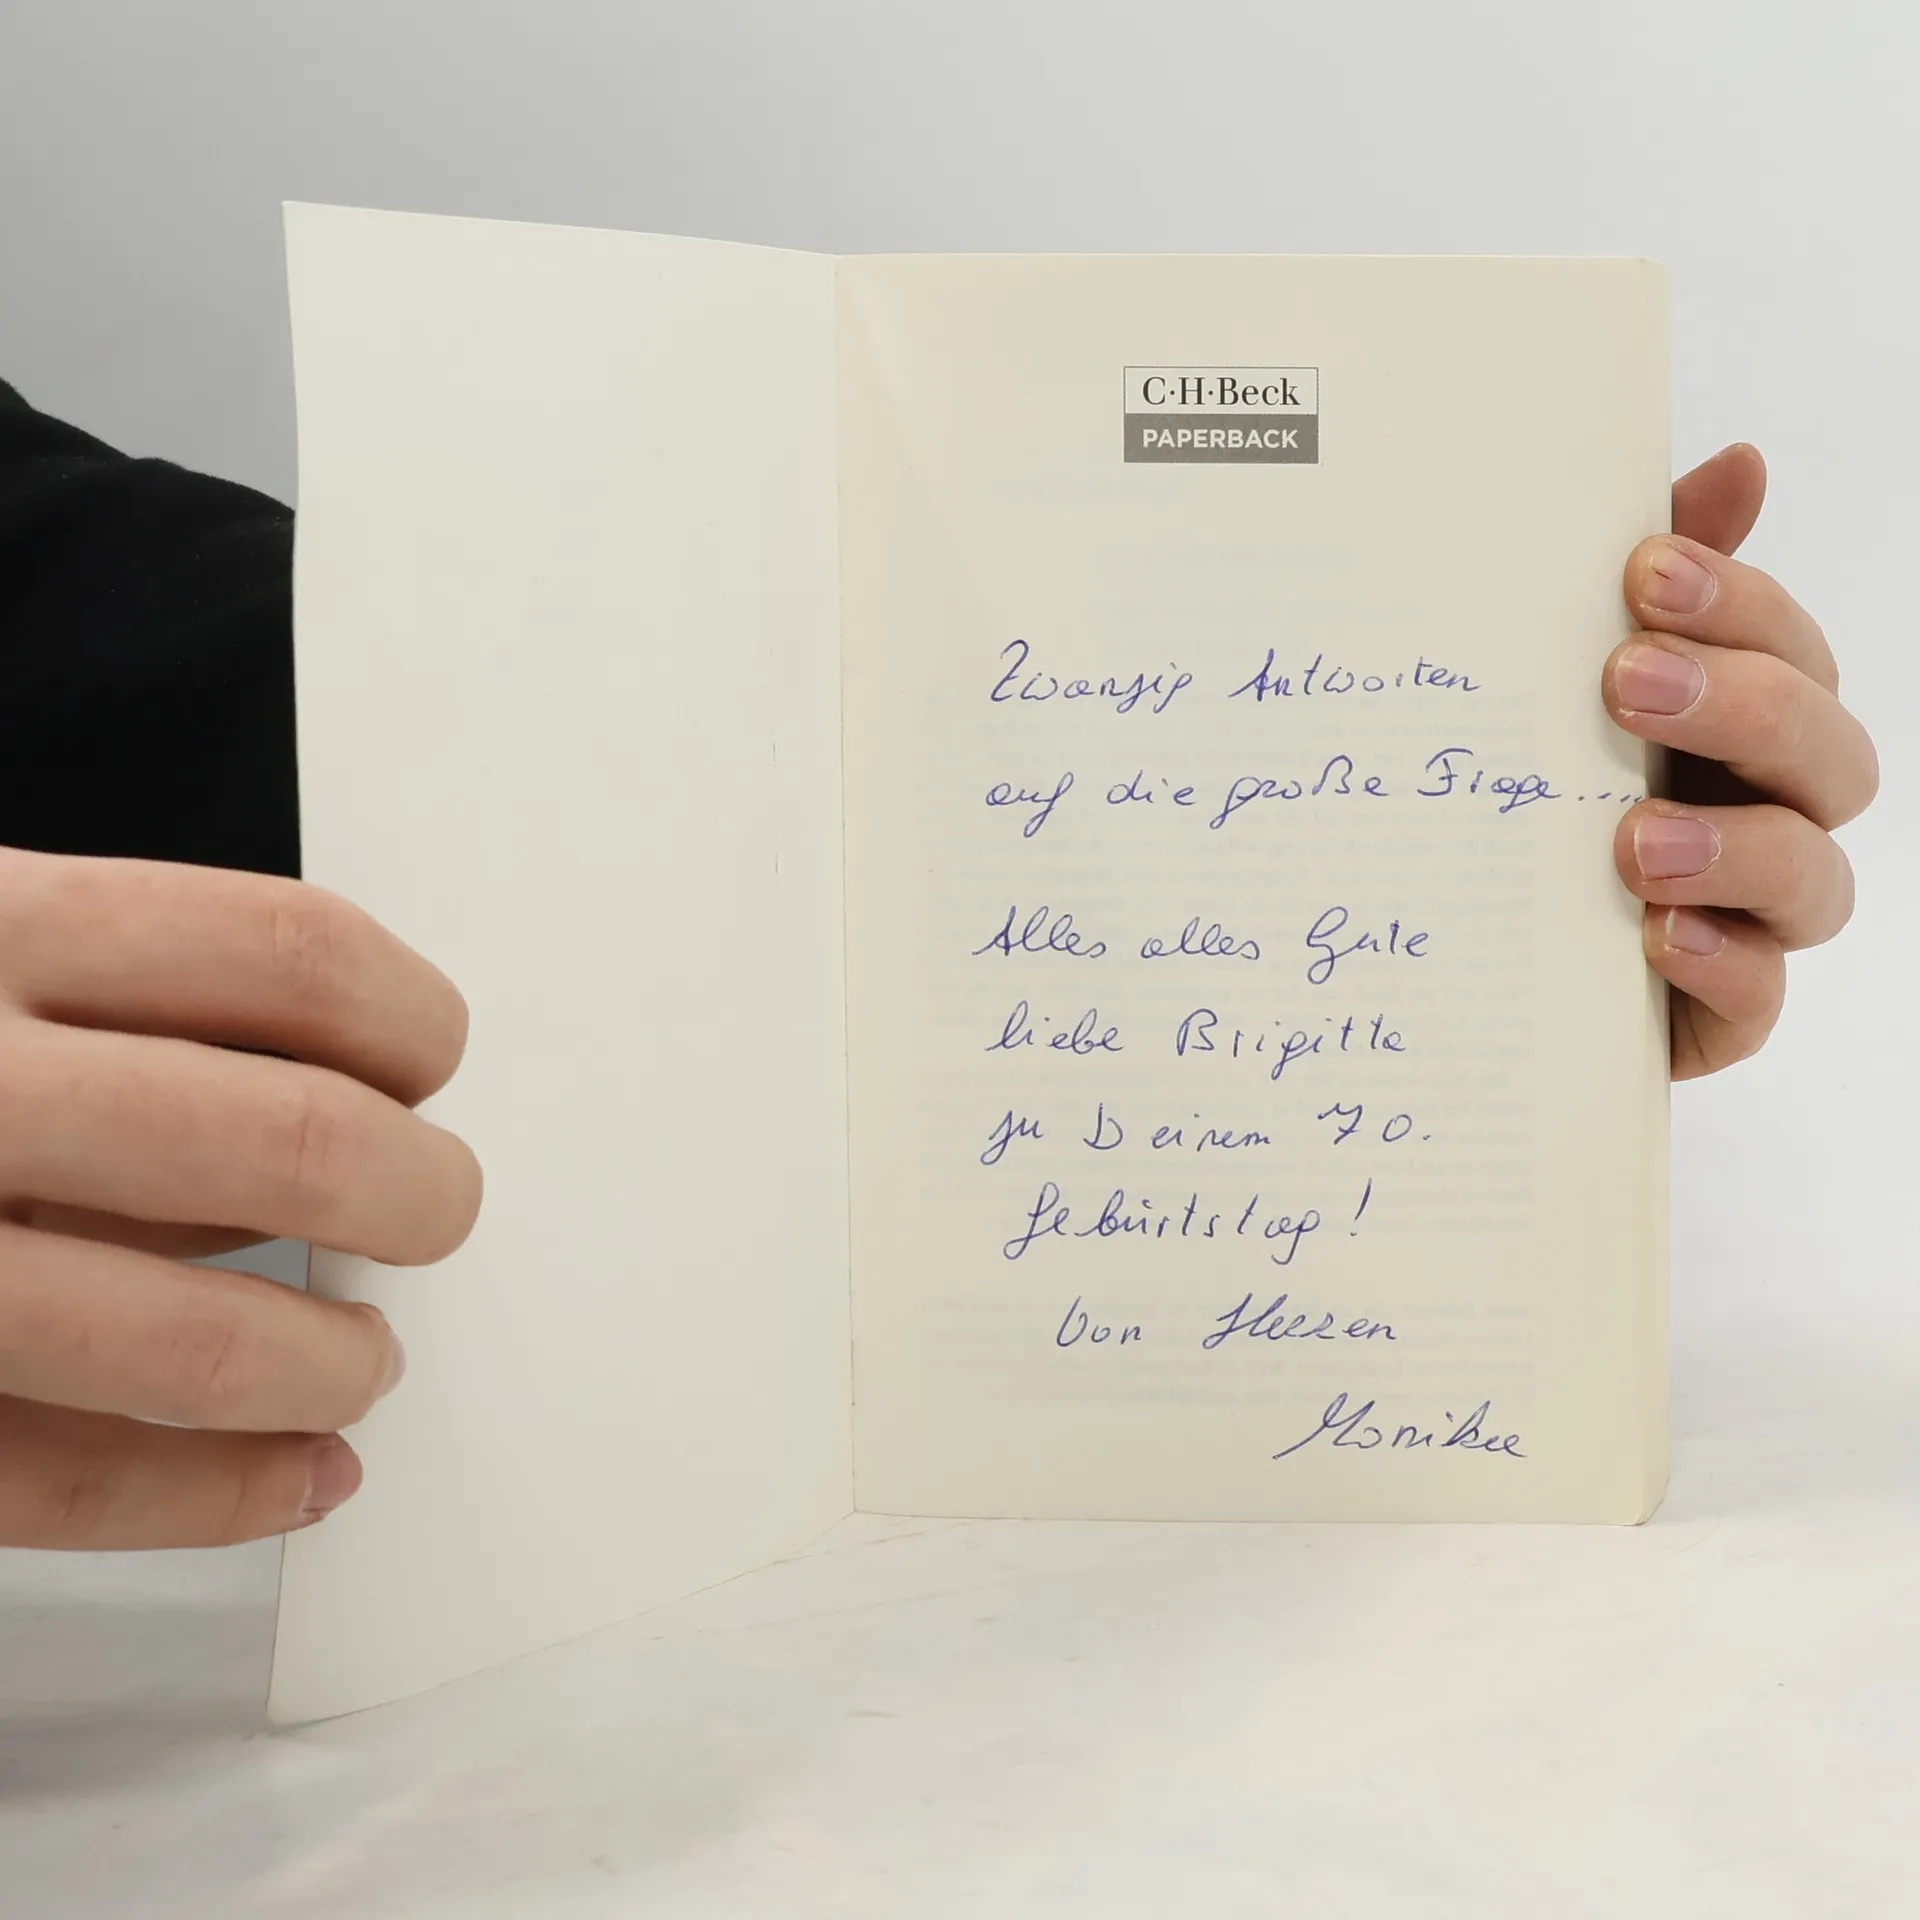 C·H·Beck
PAPERBACK
Zwanzig Antworten
auf die große Frage....
Alles alles Gute
liebe Brigitte
zu Deinem 70.
Geburtstag!
Von Herzen
Monika